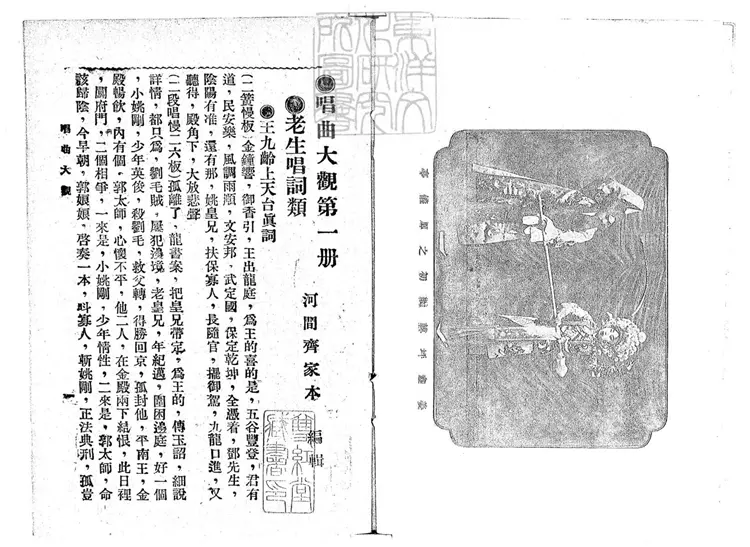 唱曲大觀第一册
河間齊家本 編輯
老生唱詞類
王九齡上天台眞詞
(二簧慢板)金鐘響,御香引,王出龍庭,爲王的喜的是,五谷豐登,君有
道,民安樂,風調雨順,文安邦,武定國,保定乾坤,全憑着,鄧先生,
陰陽有准,還有那,姚皇兄,扶保寡人,長隨官,擺御駕,九龍口進,又
聽得,殿角下,大放悲聲
(二段唱慢二六板)孤離了,龍書案,把皇兄帶定,爲王的,傳玉詔,細說
詳情,都只爲,劉毛賊,屢犯邊境,老皇兄,年紀邁,圍困邊庭,好一個
,小姚剛,少年英俊,殺劉毛,救父轉,得勝回京,孤封他,平南王,金
殿暢飲,內有個,郭太師,心懷不平,他二人,在金殿兩下結恨,此日裡
,關府門,二個相爭,一來是,小姚剛,少年情性,二來是,郭太師,命
該歸陰,今早朝,郭娘娘,啓奏一本,叫寡人,斬姚剛,正法典刑,孤豈
唱曲大觀
一